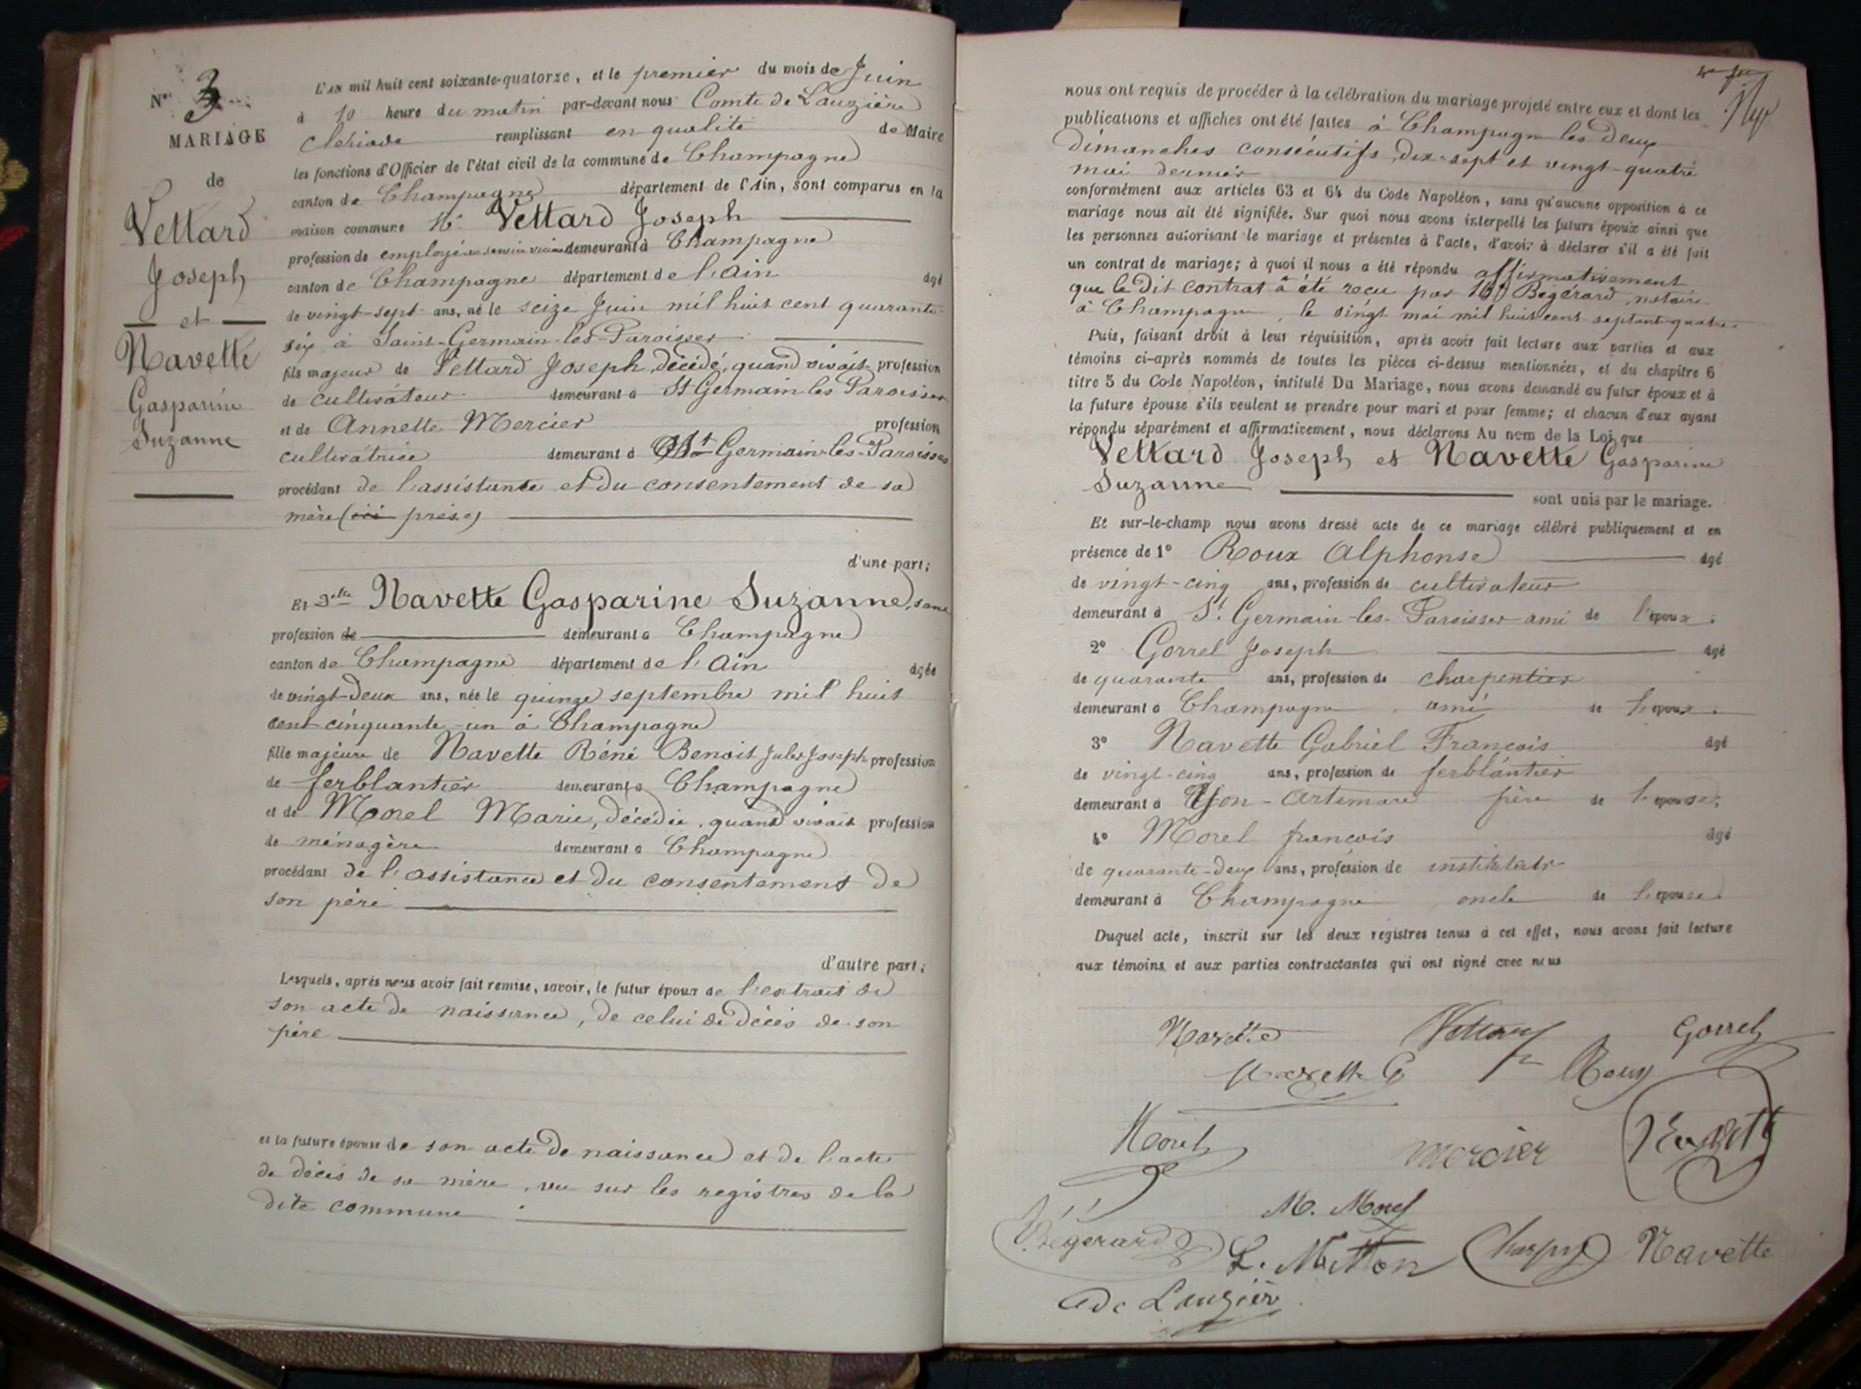 Nº 3
MARIAGE
de
Vettard
Joseph
et
Navette
Gasparine
Suzanne
L'AN mil huit cent soixante-quatorze, et le premier du mois de Juin
à 10 heure du matin par-devant nous Comte de Lauzière
remplissant en qualité de Maire
les fonctions d'Officier de l'état civil de la commune de Champagne
canton de Champagne département de l'Ain, sont comparus en la
maison commune Mr Vettard Joseph
profession de employé demeurant à Champagne
canton de Champagne département de l'Ain âgé
de vingt-sept ans, né le seize Juin mil huit cent quarante-
six à Saint-Germain-les-Paroisses
fils majeur de Vettard Joseph, décédé, quand vivait profession
de cultivateur demeurant à St Germain-les-Paroisses
et de Annette Mercier profession
cultivatrice demeurant à St Germain-les-Paroisses
procédant de l'assistance et du consentement de sa
mère
d'une part;
Et Delle Navette Gasparine Suzanne, sans
profession de demeurant à Champagne
canton de Champagne département de l'Ain âgée
de vingt-deux ans, née le quinze septembre mil huit
cent cinquante-un à Champagne
fille majeure de Navette Réné Benoit Jules Joseph profession
de ferblantier demeurant à Champagne
et de Morel Marie, décédée, quand vivait profession
de ménagère demeurant à Champagne
procédant de l'assistance et du consentement de
son père
d'autre part;
Lesquels, après nous avoir fait remise, savoir, le futur époux de l'extrait de
son acte de naissance, de celui de décès de son
père
et la future épouse de son acte de naissance et de l'acte
de décès de sa mère, vu sur les registres de la
dite commune
nous ont requis de procéder à la célébration du mariage projeté entre eux et dont les
publications et affiches ont été faites à Champagne les deux
dimanches consécutifs, dix-sept et vingt-quatre
mai dernier
conformément aux articles 63 et 64 du Code Napoléon, sans qu'aucune opposition à ce
mariage nous ait été signifiée. Sur quoi nous avons interpellé les futurs époux ainsi que
les personnes autorisant le mariage et présentes à l'acte, d'avoir à déclarer s'il a été fait
un contrat de mariage; à quoi il nous a été répondu affirmativement
que le dit contrat a été reçu par Me Bégérard, notaire
à Champagne, le vingt mai mil huit cent septante-quatre.
Puis, faisant droit à leur réquisition, après avoir fait lecture aux parties et aux
témoins ci-après nommés de toutes les pièces ci-dessus mentionnées, et du chapitre 6
titre 5 du Code Napoléon, intitulé Du Mariage, nous avons demandé au futur époux et à
la future épouse s'ils veulent se prendre pour mari et pour femme; et chacun d'eux ayant
répondu séparément et affirmativement, nous déclarons Au nom de la Loi que
Vettard Joseph et Navette Gasparine
Suzanne sont unis par le mariage.
Et sur-le-champ nous avons dressé acte de ce mariage célébré publiquement et en
présence de 1º Roux Alphonse âgé
de vingt-cinq ans, profession de cultivateur
demeurant à St Germain-les-Paroisses ami de l'époux.
2º Gorrel Joseph âgé
de quarante ans, profession de charpentier
demeurant à Champagne ami de l'époux.
3º Navette Gabriel François âgé
de vingt-cinq ans, profession de ferblantier
demeurant à Yon-Artemare frère de l'épouse.
4º Morel françois âgé
de quarante-deux ans, profession de instituteur
demeurant à Champagne oncle de l'épouse
Duquel acte, inscrit sur les deux registres tenus à cet effet, nous avons fait lecture
aux témoins et aux parties contractantes qui ont signé avec nous
Navette Vettard Gorrel
Navette G Roux
Morel mercier Navette
M. Morel
Bégérard L. Mitton Charpy Navette
de Lauzière